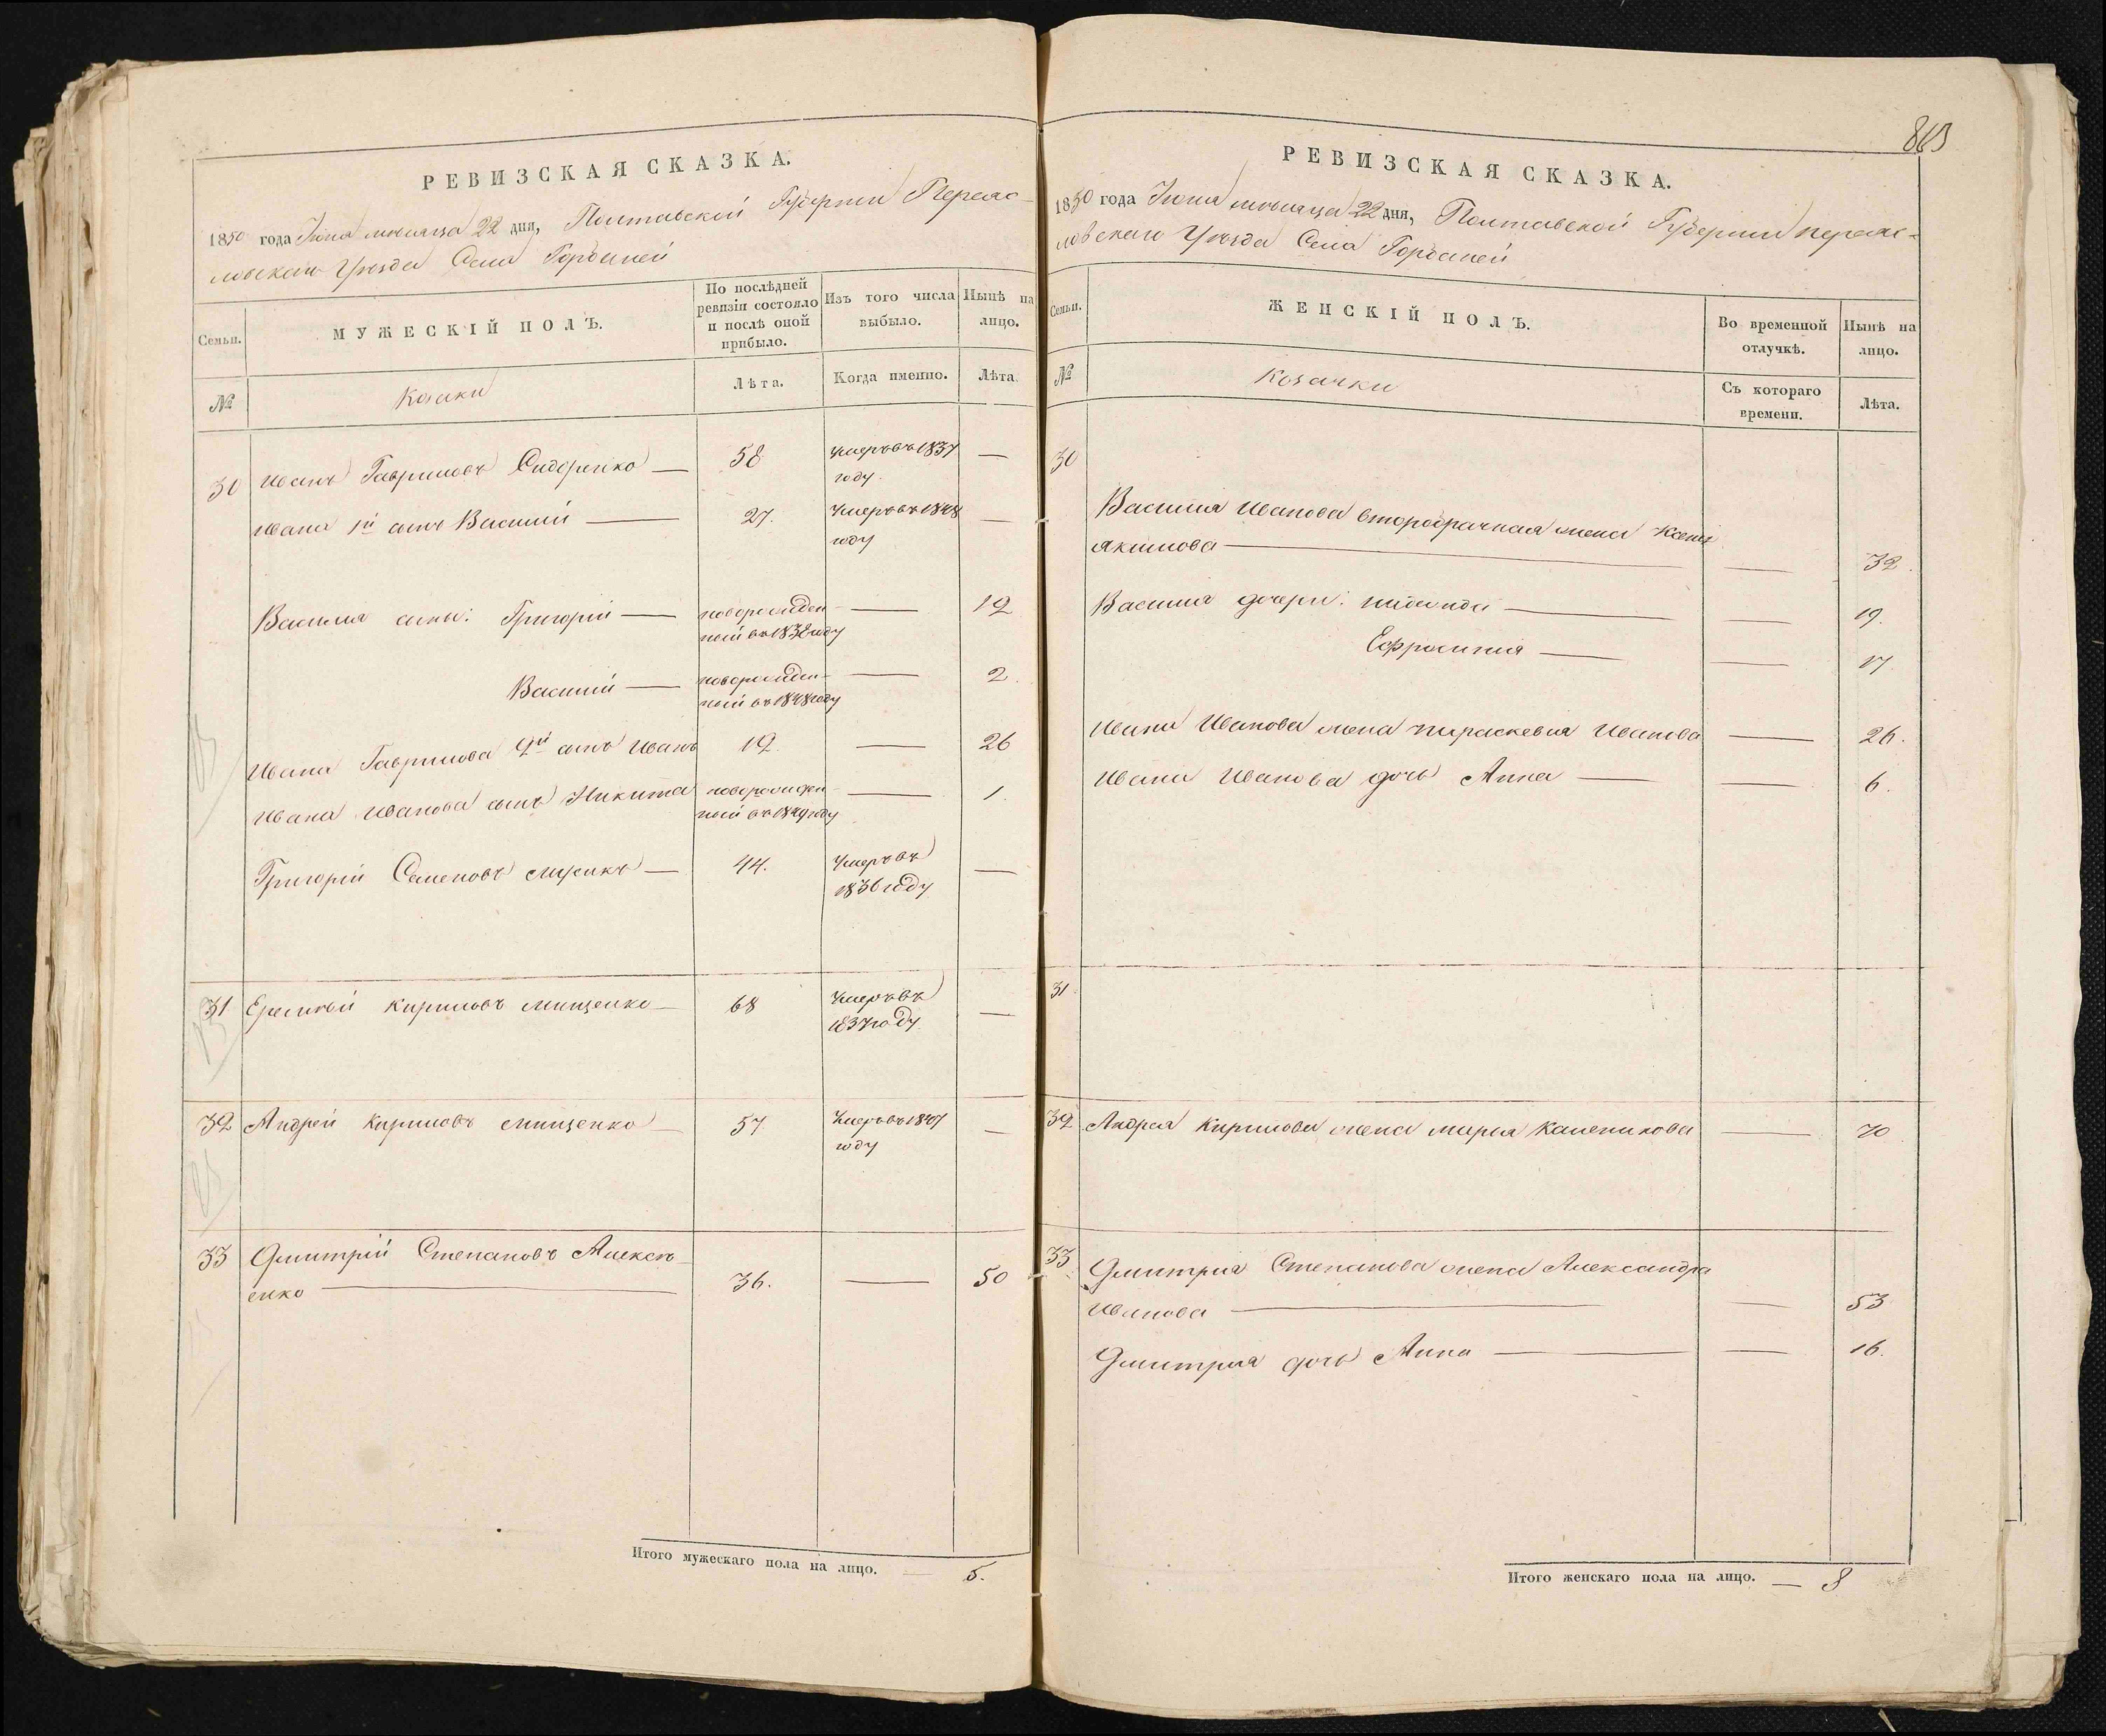 РЕВИЗСКАЯ СКАЗКА.
1850 года Іюня мѣсяца 22 дня, Полтавской Губерніи Переяс-
лавскаго Уѣзда Села
Семьи.
МУЖЕСКІЙ ПОЛЪ.
По послѣдней ревизіи состояло и послѣ оной прибыло.
Изъ того числа выбыло.
Нынѣ на лицо.
№
Козаки
Лѣта.
Когда именно.
Лѣта.
30 Иванъ Гавриловъ Сидоренко — 58 Умеръ въ 1837 —
году.
Ивана 1й сынъ Василий — 27. Умеръ въ 1848 —
году
Василия сыны: Григорій — новорожден- — 12
ный въ 1838 году
Василий — новорожден- — 2.
ный въ 1848 году
Ивана Гаврилова 2й сынъ Иванъ 12. — 26
Ивана Иванова сынъ Никита новорожден- — 1.
ный въ 1849 году
Григорій Семеновъ — 44. Умеръ въ —
1836 году
31 Еремѣй Кириловъ Мищенко — 68 Умеръ въ —
1837 году.
32 Андрей Кириловъ Мищенко — 57 Умеръ въ 1847 —
году
33 Дмитрій Степановъ Алексѣ-
енко — 36. — 50
Итого мужескаго пола на лицо. — 5.
863
РЕВИЗСКАЯ СКАЗКА.
1850 года Іюня мѣсяца 22 дня, Полтавской Губерніи Переяс-
лавскаго Уѣзда Села
Семьи.
ЖЕНСКІЙ ПОЛЪ.
Во временной отлучкѣ.
Нынѣ на лицо.
№
Козачки
Съ котораго времени.
Лѣта.
30
Василия Иванова второбрачная жена
Акимова — — 32.
Василия дочери: — — 19.
Ефросиния — — 17.
Ивана Иванова жена Параскевия Иванова — 26.
Ивана Иванова дочь Анна — — 6.
31
32 Андрея Кирилова жена Марья Каленикова — 70
33 Дмитрия Степанова жена Александра
Иванова — — 53
Дмитрия дочь Анна — — 16.
Итого женскаго пола на лицо. — 8